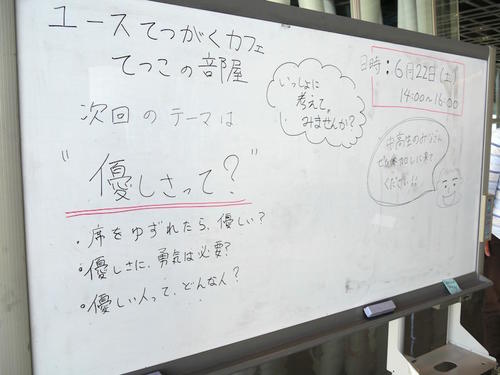 ユース てつがくカフェ
てつこの部屋
日時：6月22日（土）
14:00～16:00
いっしょに
考えて。
みませんか？
次回のテーマは
"優しさって？"
中高生のみなさん
ぜひ参加しに来て
ください!!
・席をゆずれたら、優しい？
・優しさに、勇気は必要？
・優しい人って、どんな人？